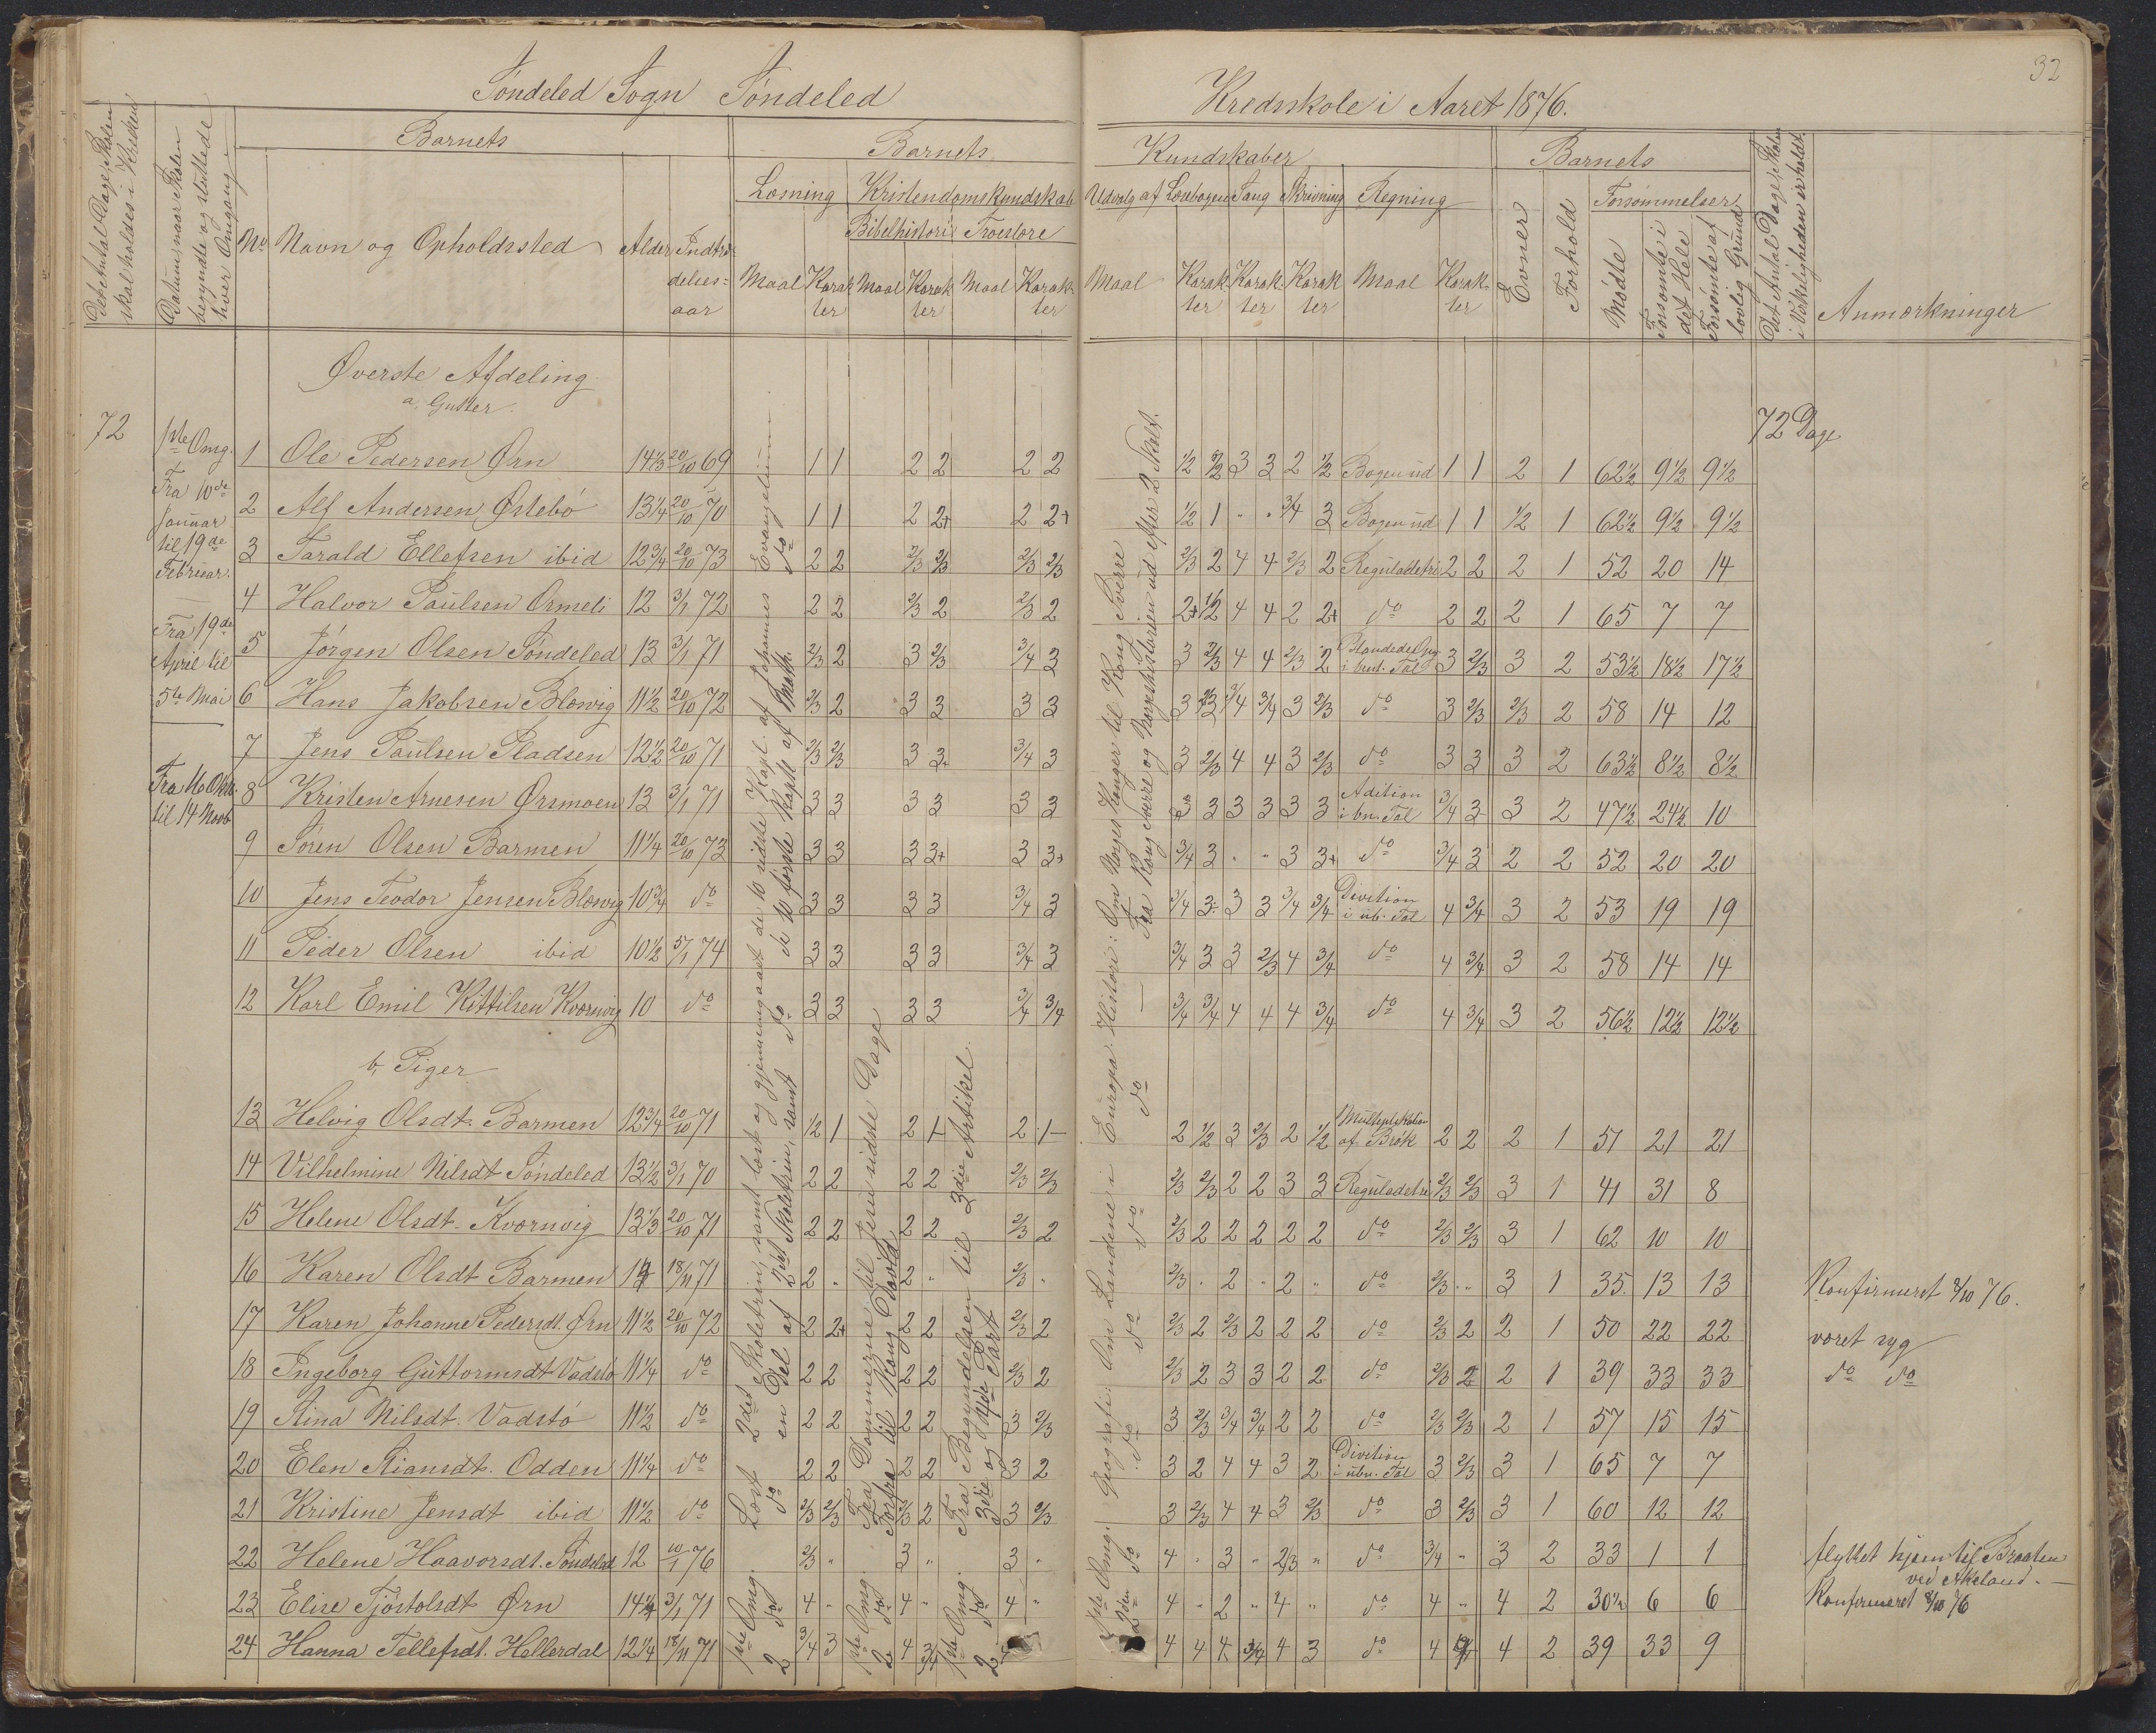 32
Søndeled Sogn Søndeled Kredsskole i Aaret 1876.
Det Antal Dage, Skolen skal holdes i Kredsen
Datum, naar Skolen begyndte og sluttede hver Omgang
Barnets
No Navn og Opholdssted Alder Indtrædelsesaar
Barnets Kundskaber
Læsning Kristendomskundskab Udvalg af Læsebogen Sang Skrivning Regning
Bibelhistorie Troeslære
Maal Karakter Maal Karakter Maal Karakter Maal Karakter Karakter Karakter Maal Karakter
Barnets
Evner Forhold Forsømmelser
Mødte Forsømte i det Hele Forsømte af lovlig Grund
Det Antal Dage, Skolen i Virkeligheden er holdt
Anmærkninger
Øverste Afdeling
a, Gutter.
72
72 Dage
1ste Omg.
Fra 10de
Januar
til 19de
Februar.
Fra 19de
April til
5te Mai
Fra 16 Oktb.
til 14 Novb
1 Ole Pedersen Ørn 14 1/3 20/10 69 1 1 2 2 2 2 1/2 1/2 3 3 2 1/2 Bogen ud 1 1 2 1 62 1/2 9 1/2 9 1/2
2 Alf Andersen Østebø 13 1/4 20/10 70 1 1 2 2+ 2 2+ 1/2 1 " " 3/4 3 Bogen ud 1 1 1/2 1 62 1/2 9 1/2 9 1/2
3 Tarald Ellefsen ibid 12 3/4 20/10 73 2 2 2/3 2/3 2/3 2/3 2/3 2 4 4 2/3 2 Reguladetri 2 2 2 1 52 20 14
4 Halvor Paulsen Ormeli 12 3/1 72 2 2 2/3 2 2/3 2 2+ 1/2 4 4 2 2+ do 2 2 2 1 65 7 7
5 Jørgen Olsen Søndeled 13 3/1 71 2/3 2 3 2/3 3/4 3 3 2/3 4 4 2/3 2 Blandede Opg. i ben. Tal 3 2/3 3 2 53 1/2 18 1/2 17 1/2
6 Hans Jakobsen Blævig 11 1/2 20/10 72 2/3 2 3 3 3 3 3 2/3 3/4 3/4 3 2/3 do 3 2/3 2/3 2 58 14 12
7 Jens Paulsen Pladsen 12 1/2 20/10 71 2/3 2/3 3 3+ 3/4 3 3 2/3 4 4 3 2/3 do 3 3 3 2 63 1/2 8 1/2 8 1/2
8 Kristen Arnesen Ørsmoen 13 3/1 71 3 3 3 3 3 3 3 3 3 3 3 3 Adition i bn. Tal 3/4 3 3 2 47 1/2 24 1/2 10
9 Søren Olsen Barmen 11 1/4 20/10 73 3 3 3 3+ 3 3+ 3/4 3 " " 3 3+ do 3/4 3 2 2 52 20 20
10 Jens Teodor Jensen Blævig 10 3/4 do 3 3 3 3 3/4 3 3/4 3 3 3 3/4 3/4 Divition i ub. Tal 4 3/4 3 2 53 19 19
11 Peder Olsen ibid 10 1/2 5/1 74 3 3 3 3 3/4 3 3/4 3 3 2/3 4 3/4 do 4 3/4 3 2 58 14 14
12 Karl Emil Kittilsen Kværnvig 10 do 3 3 3 3 3/4 3/4 3/4 3/4 4 4 4 3/4 do 4 3/4 3 2 56 1/2 12 1/2 12 1/2
b, Piger
13 Helvig Olsdt. Barmen 12 3/4 20/10 71 1/2 1 2 1- 2 1- 2 1/2 3 2/3 2 1/2 Multiplikation af Brøk 2 2 2 1 51 21 21
14 Vilhelmine Nilsdt Søndeled 13 1/2 3/1 70 2 2 2 2 2/3 2/3 2/3 2/3 2 2 3 3 Reguladetri 2/3 2/3 3 1 41 31 8
15 Helene Olsdt. Kværnvig 13 1/3 20/10 71 2 2 2 2 2/3 2 2/3 2 2 2 2 2 do 2/3 2/3 3 1 62 10 10
16 Karen Olsdt Barmen 14 18/11 71 2 " 2 " 2/3 " 2/3 " 2 " 2 " do 2/3 " 3 1 35 13 13 Konfirmeret 8/10 76.
17 Karen Johanne Pedersdt. Ørn 11 1/2 20/10 72 2 2+ 2 2 2/3 2 2/3 2 2/3 2 2 2 do 2/3 2 2 1 50 22 22 været syg
18 Ingeborg Guttormsdt Vadstø 11 1/4 do 2 2 2 2 2/3 2 2/3 2 3 3 2 2 do 2/3 2 2 1 39 33 33 do do
19 Stina Nilsdt. Vadstø 11 1/2 do 2 2 2 2 3 2/3 3 2/3 3/4 3/4 2 2 do 2/3 2/3 2 1 57 15 15
20 Elen Stiansdt. Odden 11 1/4 do 2 2 2 2 3 2 3 2 4 4 3 2 Divition i ubn. Tal 3 2/3 3 1 65 7 7
21 Kristine Jensdt ibid 11 1/2 do 2/3 2/3 2/3 2 3 2/3 3 2/3 4 4 3 2/3 do 3 2/3 3 1 60 12 12
22 Helene Haavorsdt. Søndeled 12 10/1 76 2/3 " 3 " 3 " 4 " 3 " 2/3 " do 3/4 " 3 2 33 1 1 flyttet hjem til Braaten ved Akeland.
23 Elise Tjøstolsdt Ørn 14 1/4 3/1 71 4 " 4 " 4 " 4 " 2 " 4 " do 4 " 4 2 30 1/2 6 6 Konfirmeret 8/10 76
24 Hanna Tellefsdt. Hellerdal 12 1/4 18/11 71 3/4 3 4 3/4 4 4 4 3/4 4 3 do 4 4 2 39 33 9
1ste Omg. Læst 2det Skoletrin, samt læst og gjennemgaaet de 10 sidste Kapl. af Johannes Evangelium.
2 do do en Del af 2det Skoletrin, samt do de 10 første Kaptl af Math. do
1ste Omg. Fra Dommerne til Jesu sidste Dage
2 do Forfra til Kong David
1ste Omg. Fra Begyndelsen til 3die Artikel.
2 do 3die og 4de Part
1ste Omg. Geografi: Om Landene i Europa. Histori: Om Norges Konger til Kong Sverre
2den do do do do do — Fra Kong Sverre og Norgeshistorien ud efter 2 Skolt.